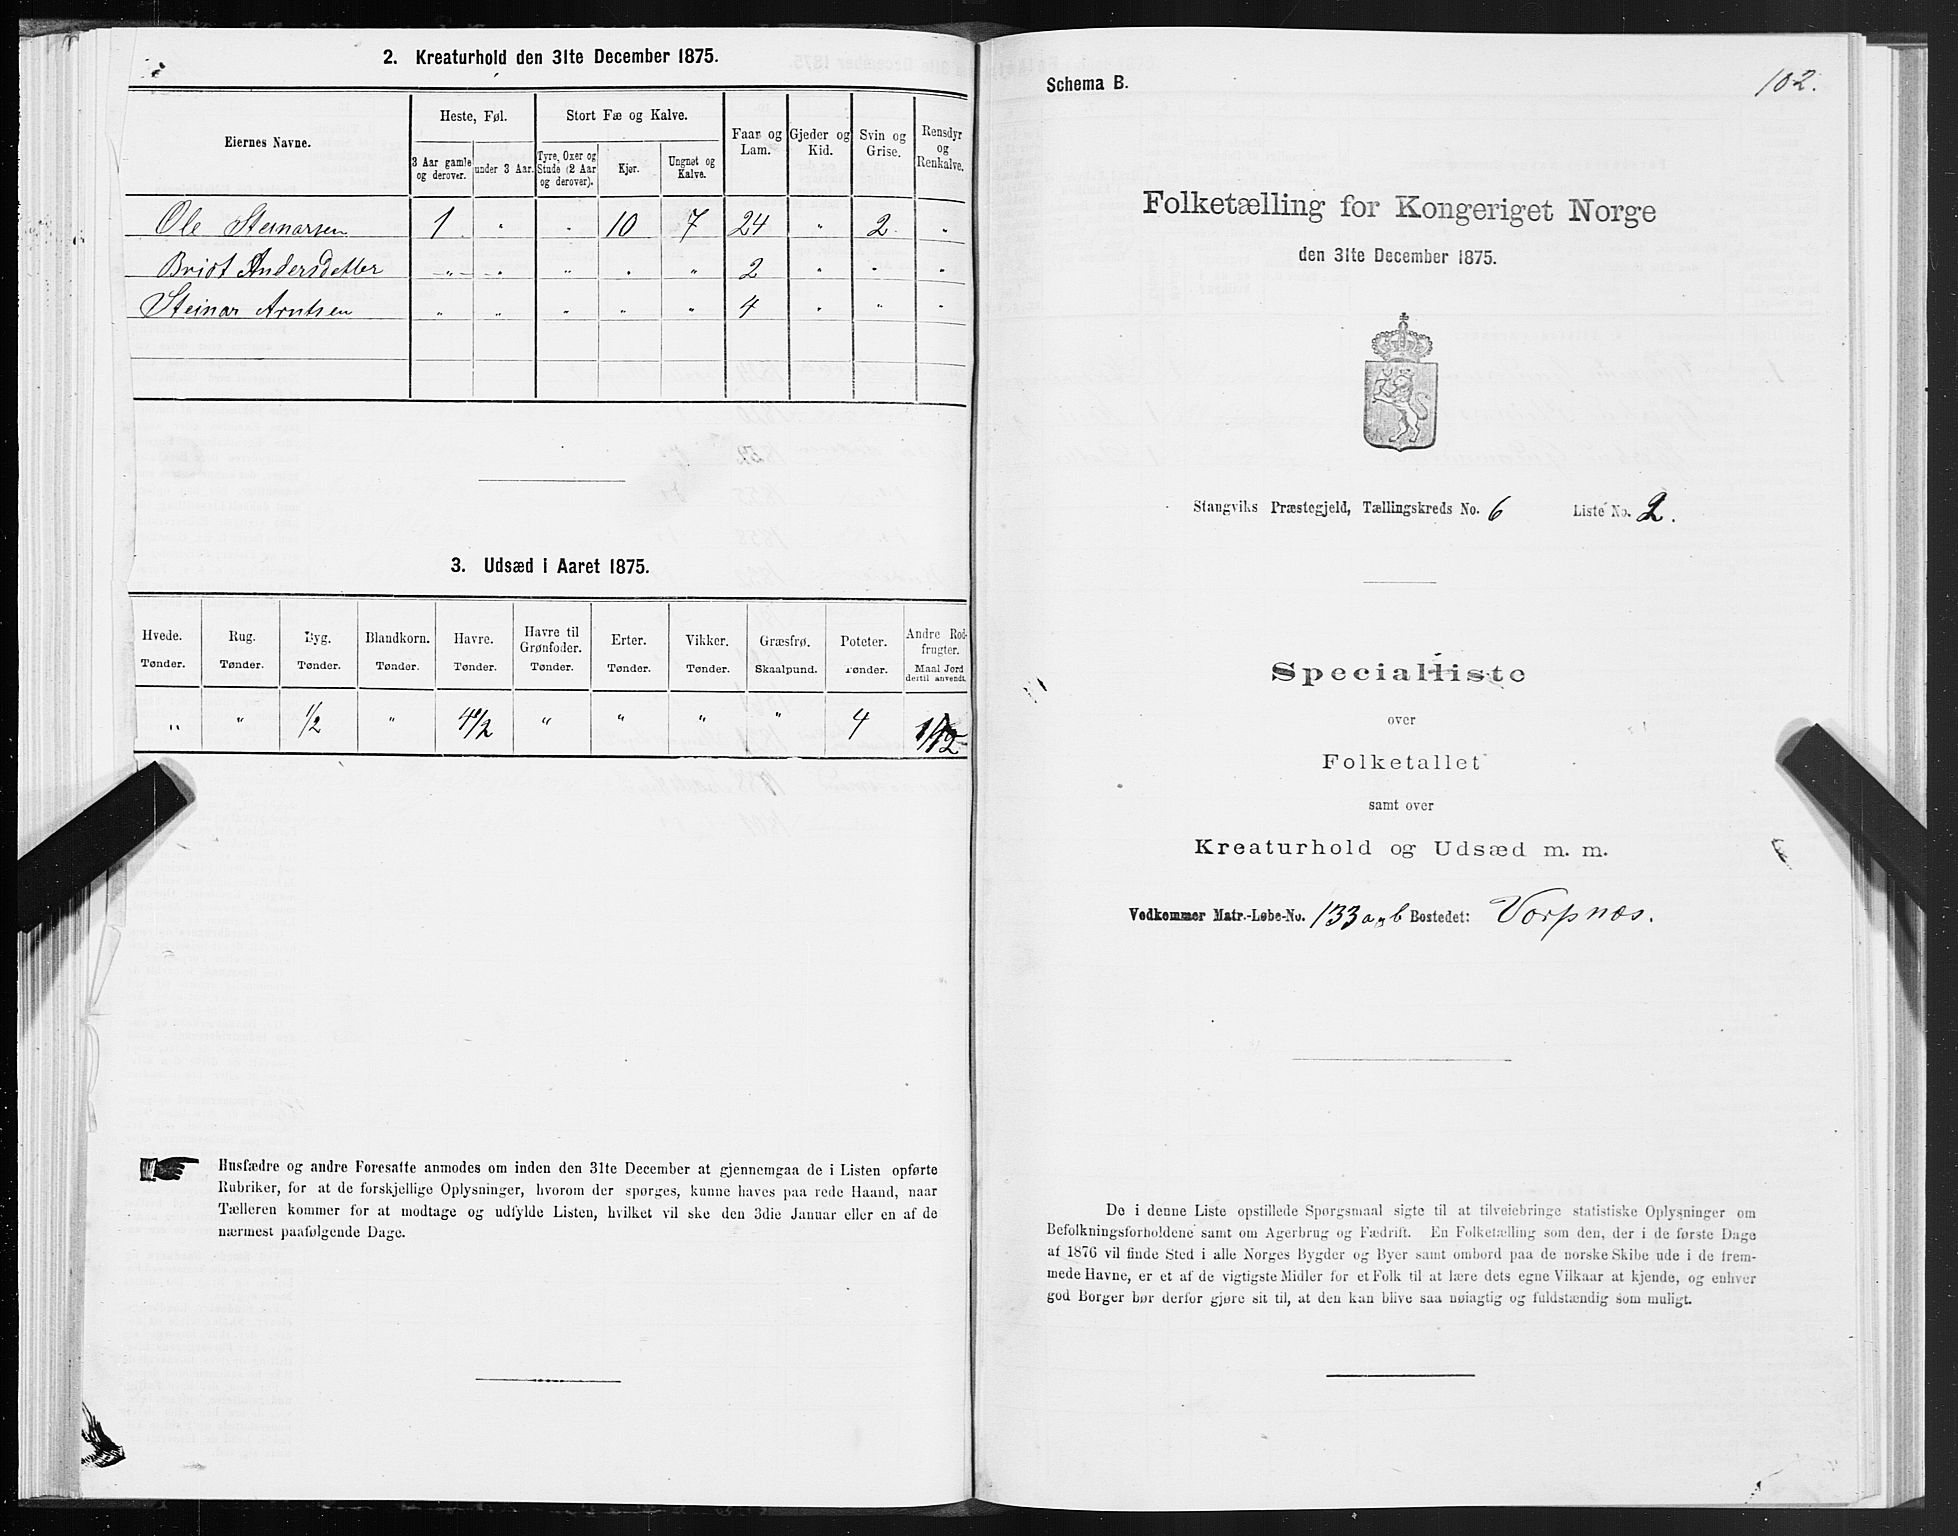 2. Kreaturhold den 31te December 1875.
Eiernes Navne.
Heste, Føl.
3 Aar gamle og derover.
under 3 Aar.
Stort Fæ og Kalve.
Tyre, Oxer og Stude (2 Aar og derover).
Kjør.
Ungnøt og Kalve.
Faar og Lam.
Gjeder og Kid.
Svin og Grise.
Rensdyr og Renkalve.
Ole Steinarsen 1 " " 10 7 24 " 2 "
Briot Andersdetter " " " " " 2 " " "
Steinar Arntsen " " " " " 4 " " "
3. Udsæd i Aaret 1875.
Hvede. Rug. Byg. Blandkorn. Havre. Havre til Grønfoder. Erter. Vikker. Græsfrø. Poteter. Andre Rodfrugter.
Tønder. Tønder. Tønder. Tønder. Tønder. Tønder. Tønder. Tønder. Skaalpund. Tønder. Maal Jord dertil anvendt.
" " 1/2 " 4 1/2 " " " " 4
Husfædre og andre Foresatte anmodes om inden den 31te December at gjennemgaa de i Listen opførte
Rubriker, for at de forskjellige Oplysninger, hvorom der spørges, kunne haves paa rede Haand, naar
Tælleren kommer for at modtage og udfylde Listen, hvilket vil ske den 3die Januar eller en af de
nærmest paafølgende Dage.
Schema B.
102.
Folketælling for Kongeriget Norge
den 31te December 1875.
Stangviks Præstegjeld, Tællingskreds No. 6 Liste No. 2.
Specialliste
over
Folketallet
samt over
Kreaturhold og Udsæd m. m.
Vedkommer Matr.-Løbe-No. 133 a og b Bostedet: Vorpnæs.
De i denne Liste opstillede Spørgsmaal sigte til at tilveiebringe statistiske Oplysninger om
Befolkningsforholdene samt om Agerbrug og Fædrift. En Folketælling som den, der i de første Dage
af 1876 vil finde Sted i alle Norges Bygder og Byer samt ombord paa de norske Skibe ude i de frem-
mede Havne, er et af de vigtigste Midler for et Folk til at lære dets egne Vilkaar at kjende, og enhver
god Borger bør derfor gjøre sit til, at den kan blive saa nøiagtig og fuldstændig som muligt.